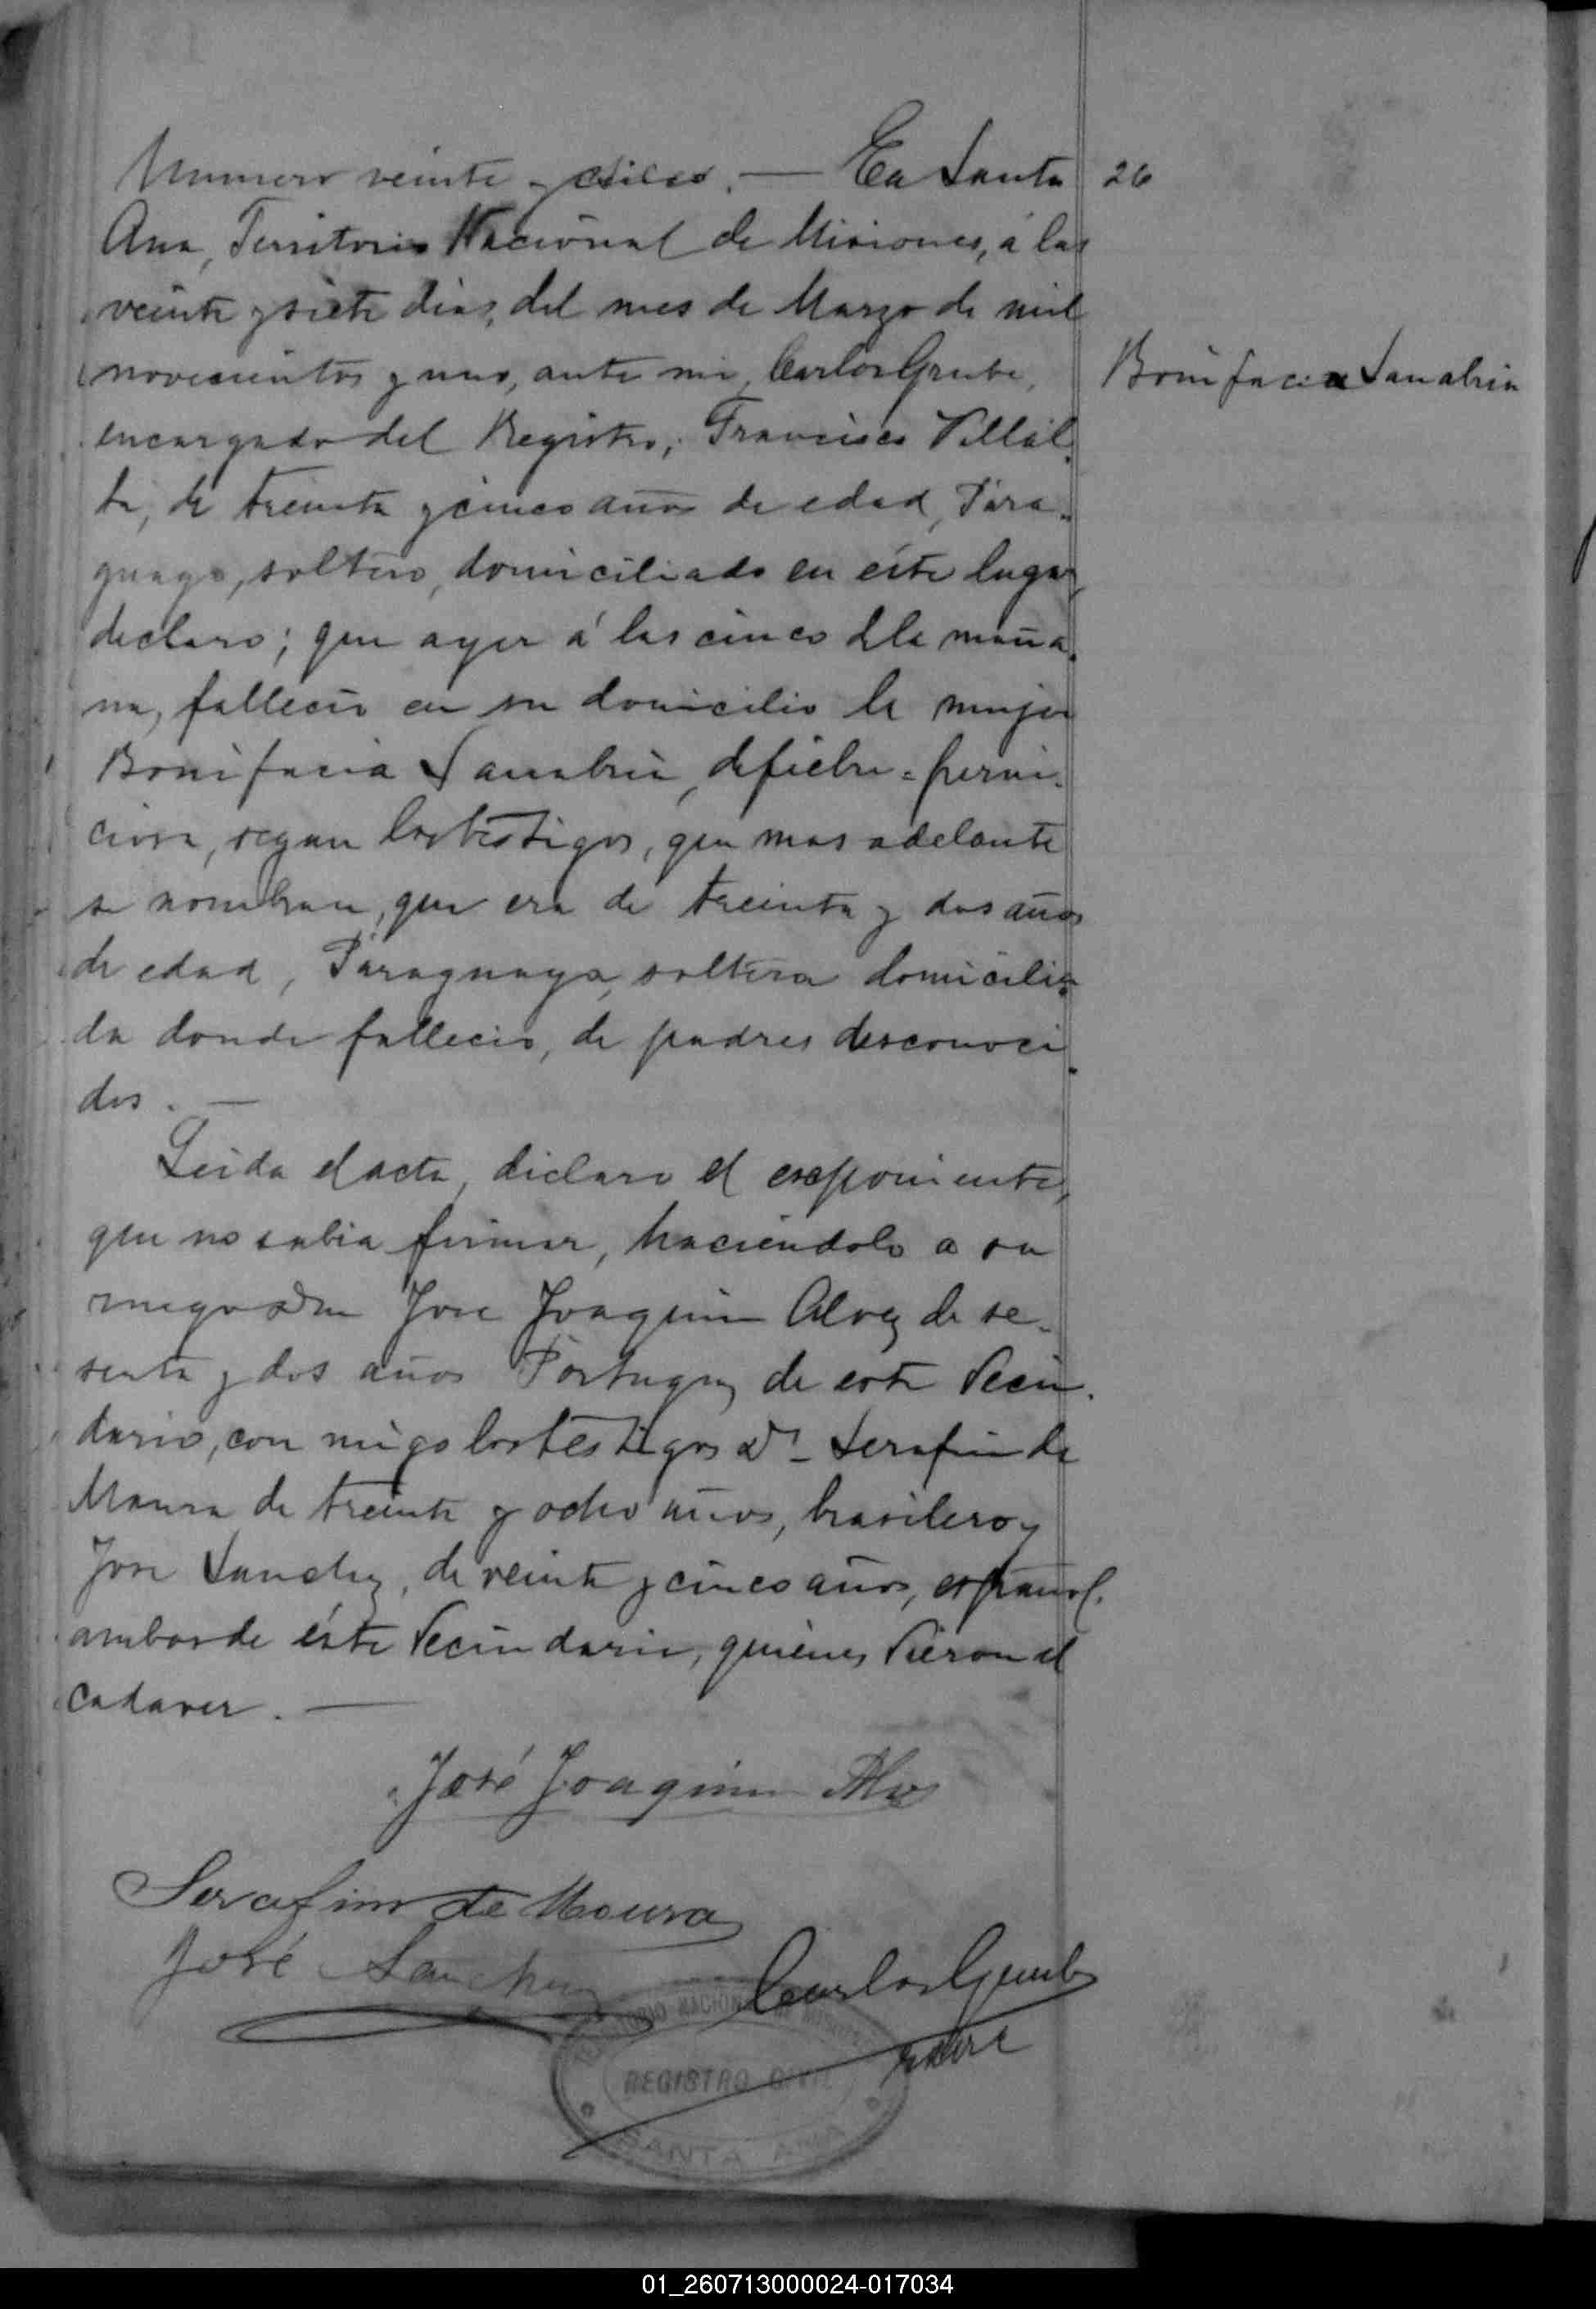 Numero veinte y
26
En Santa
Ana, Territorio Nacional de Misiones, á las
veinte y siete dias, del mes de Marzo de mil
novecientos y uno, ante mi, Carlos Grube,
Bonifacia Sanabria
encargado del Registro; Francisco Villal-
ba, de treinta y cinco años de edad, Para-
guayo, soltero, domiciliado en éste lugar,
declaro; que ayer á las cinco dla maña-
na, fallecio en su domicilio la mujer
Bonifacia Sanabria, de fiebre=perni-
ciosa, segun los testigos, que mas adelante
se nombran, que era de treinta y dos años
de edad, Paraguaya, soltera domicilia-
da donde fallecio, de padres desconoci-
dos. —
Leida el acta, declaro el exponiente,
que no sabia firmar, haciendolo a su
ruego Dn Jose Joaquin Alvez de se-
senta y dos años Portuguez de este Vecin-
dario, con migo los testigos Dn Serafin de
Maura de treinta y ocho años, brasilero y
Jose Sanchez, de veinte y cinco años, español,
ambos de éste Vecindario, quienes Vieron el
cadaver. —
José Joaquim Alves
Serafim de Moura
José Sanchez
Carlos Grube
TERRITORIO NACIONAL DE MISIONES
REGISTRO CIVIL
SANTA ANA
01_260713000024-017034